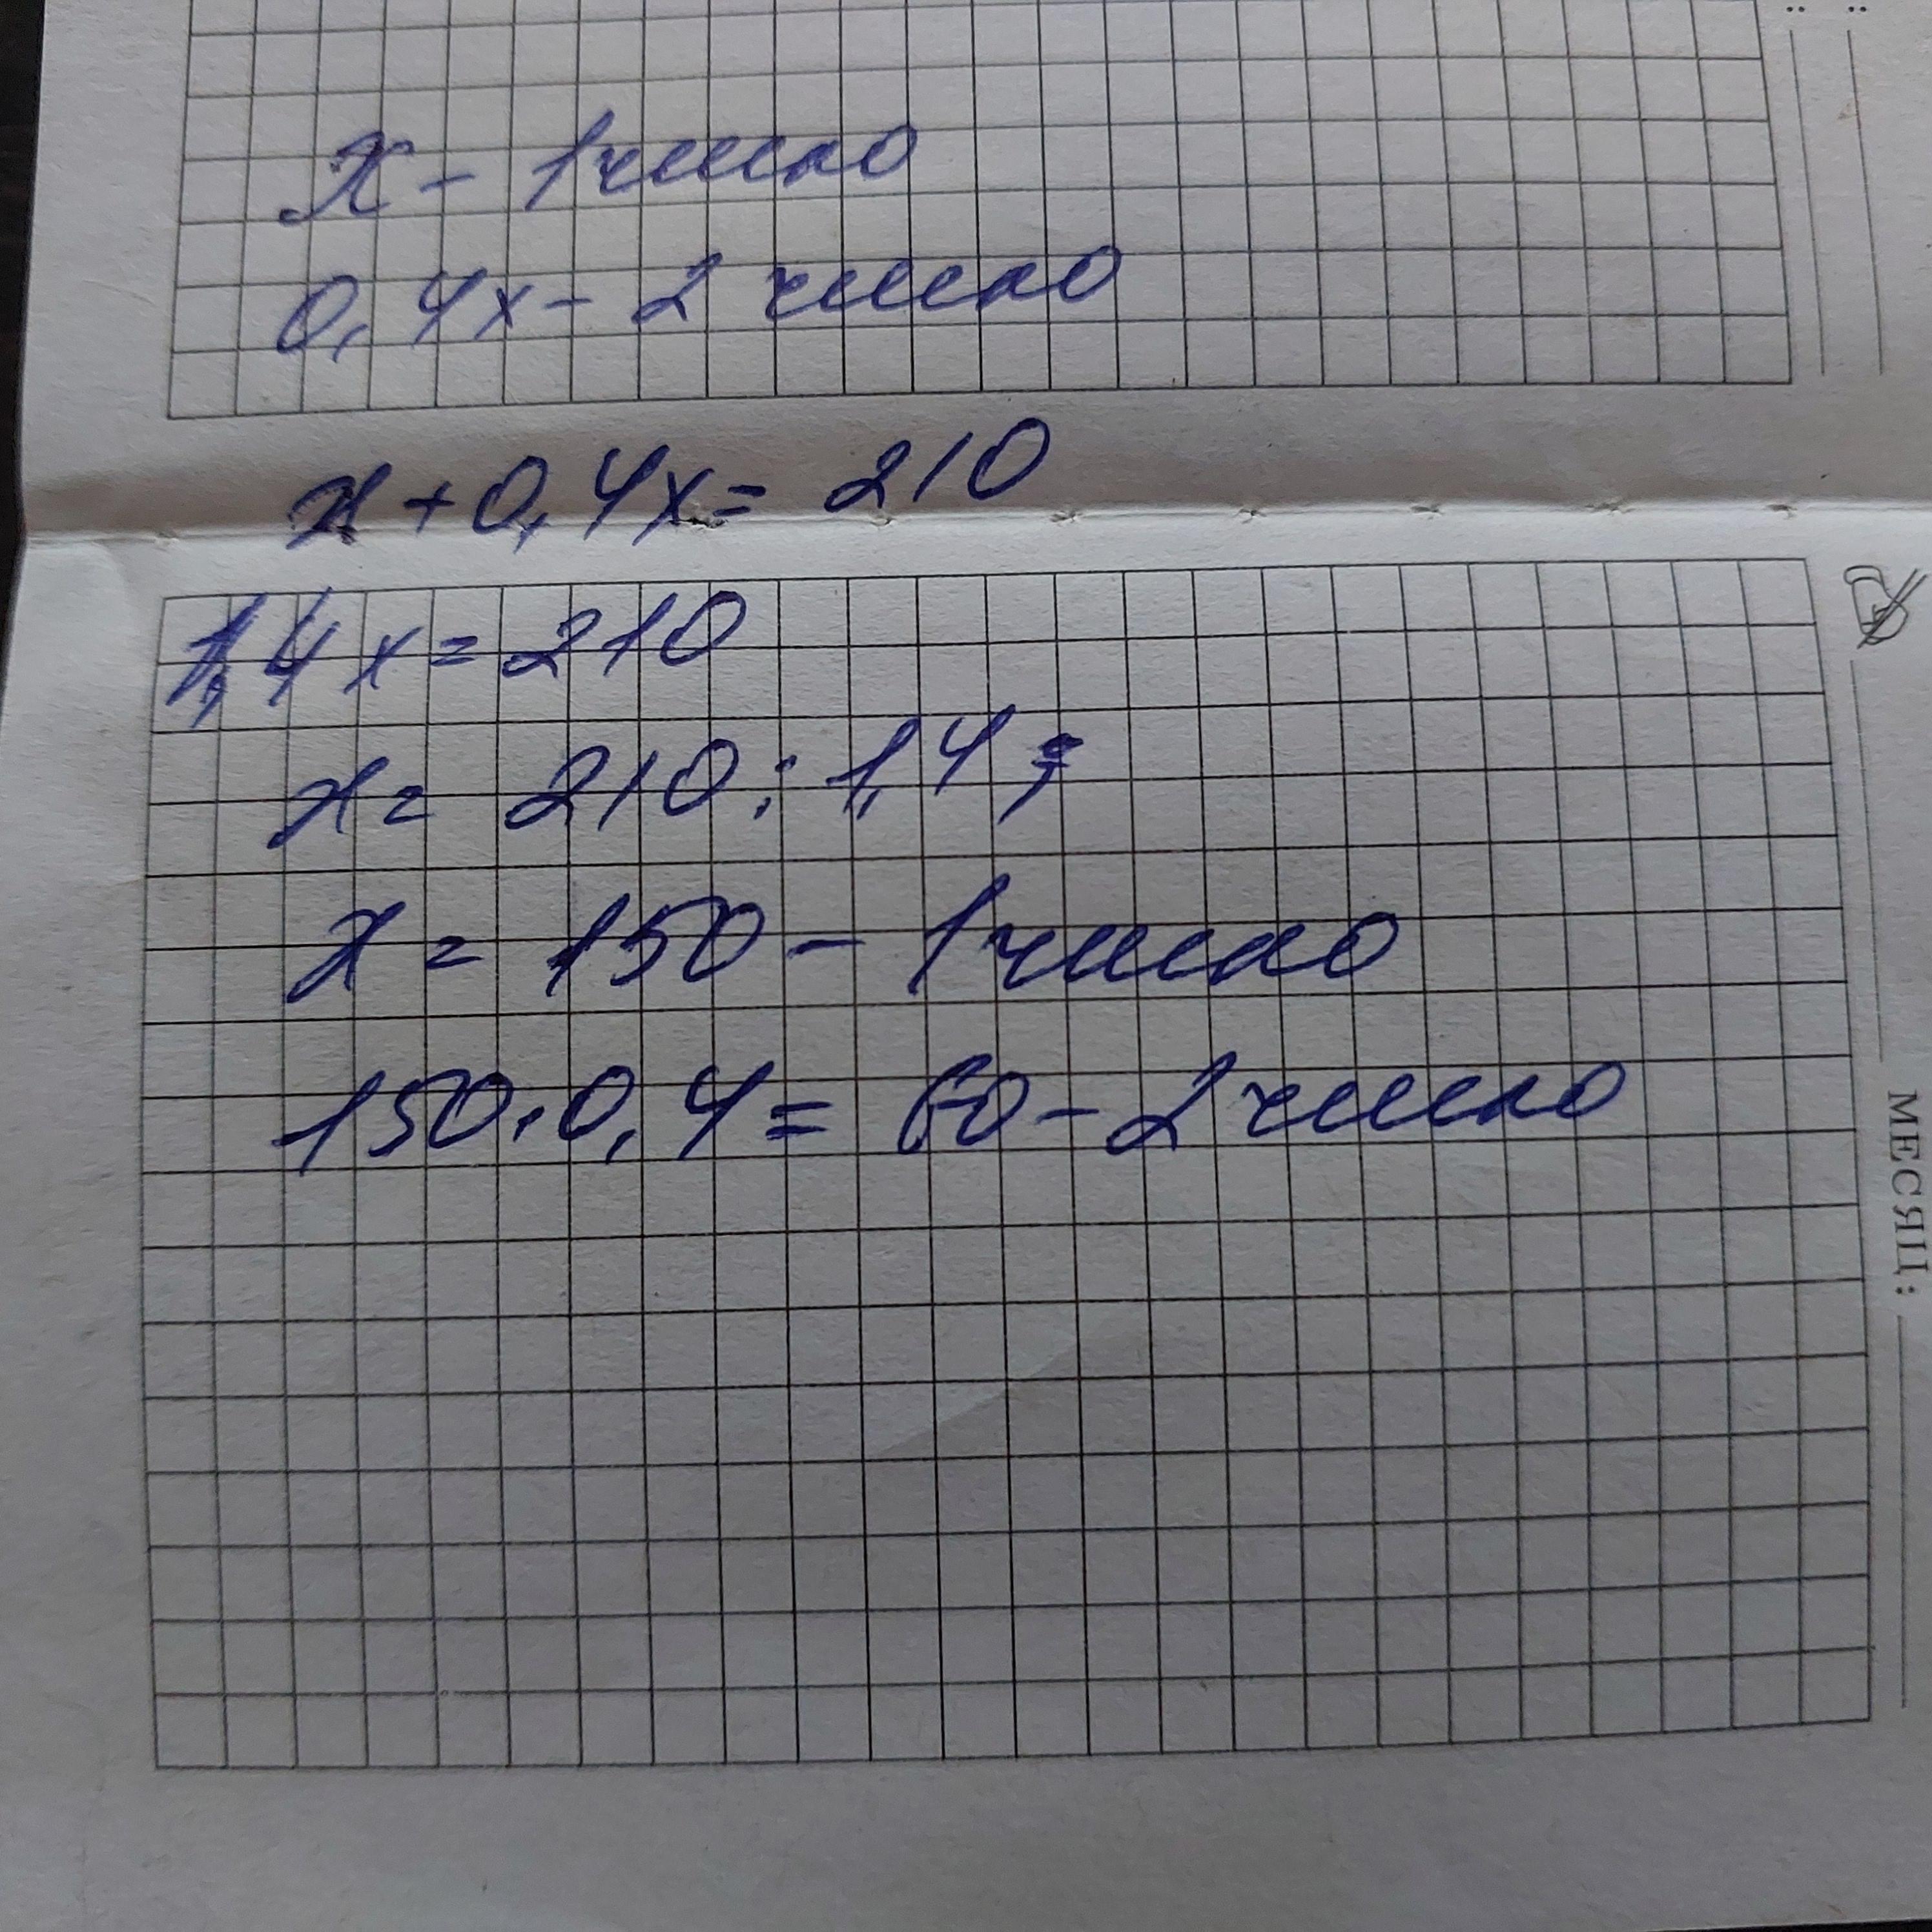 x - 1 число
0,4x - 2 число
x + 0,4x = 210
1,4x = 210
x = 210 : 1,4
x = 150 - 1 число
150 · 0,4 = 60 - 2 число
МЕСЯЦ: